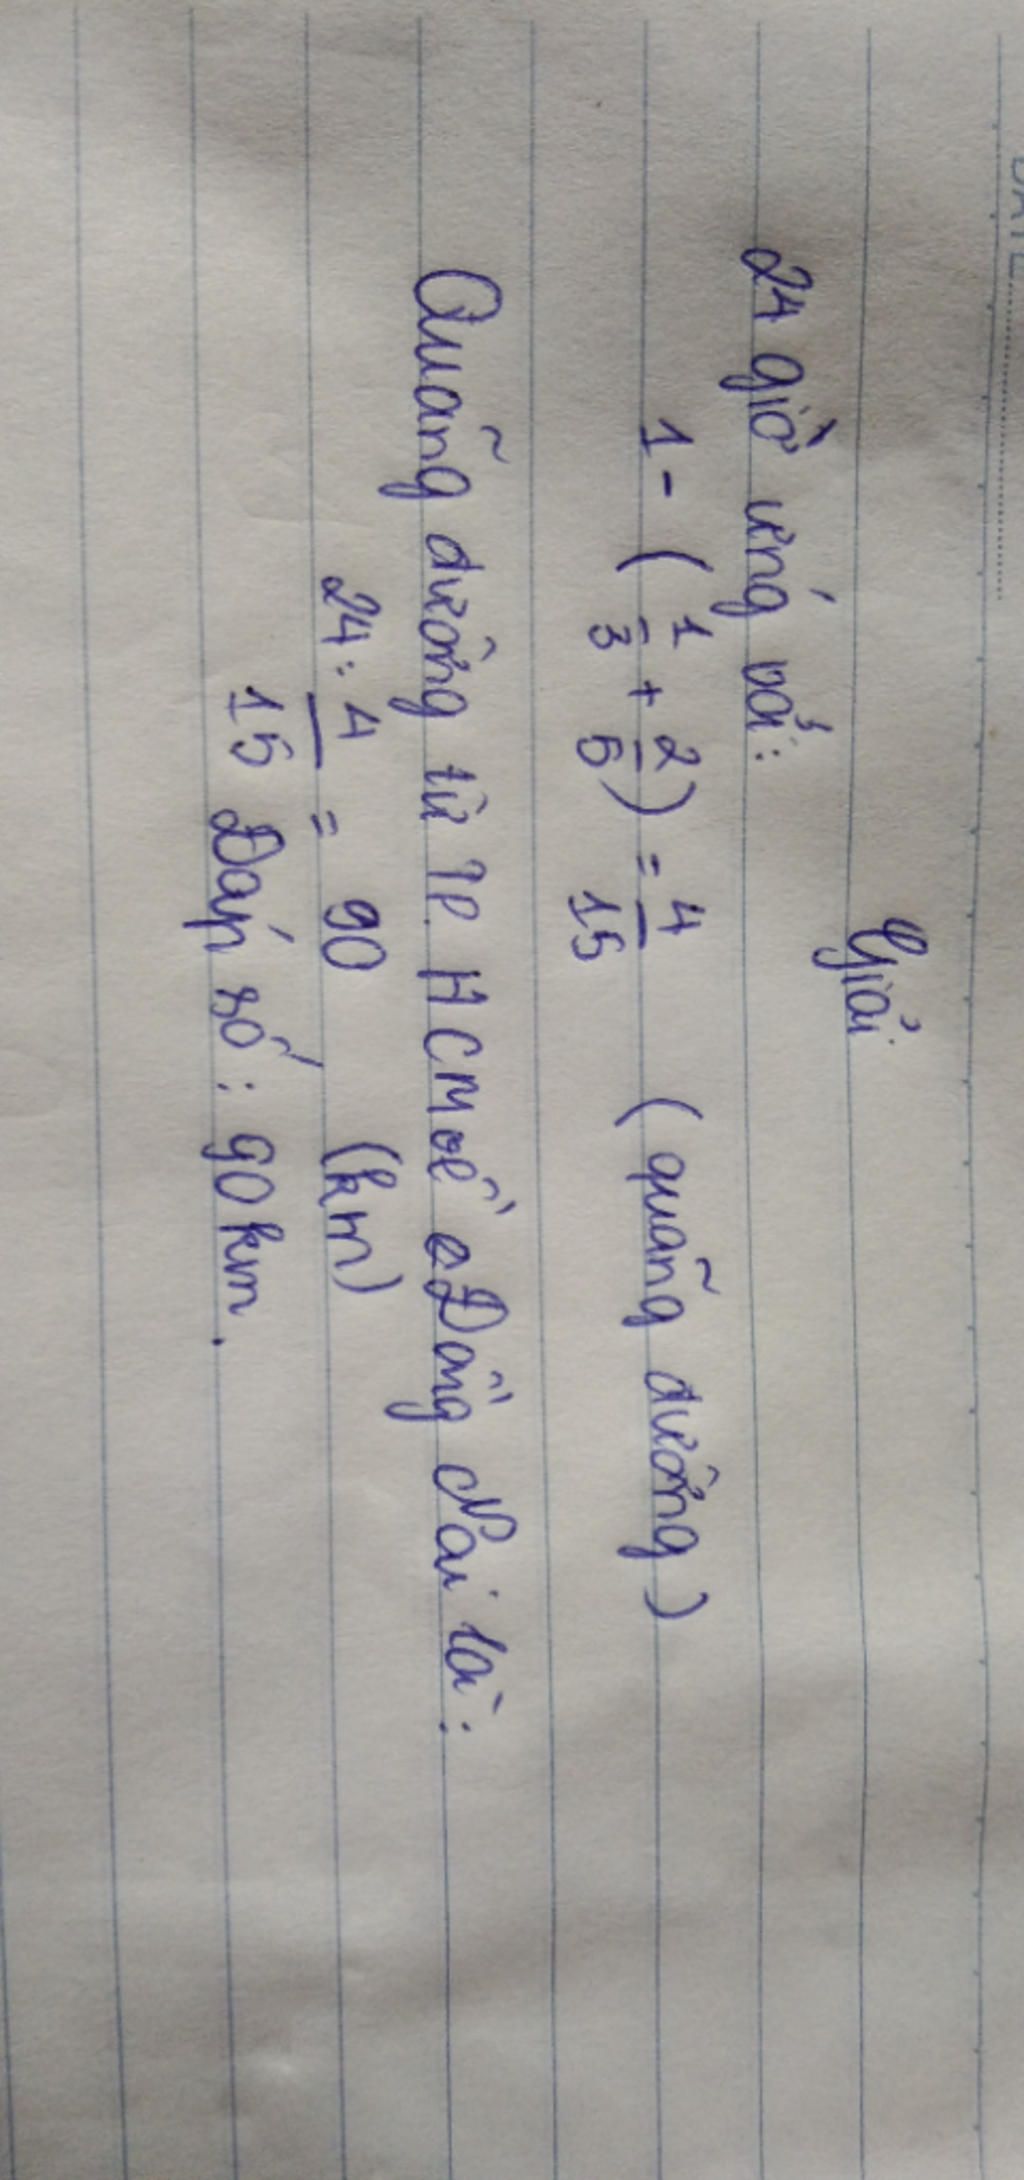 DATE
Giải
24 giờ ứng với:
1 - ( 1/3 + 2/5 ) = 4/15 ( quãng đường )
Quãng đường từ TP. HCM về Đồng Nai là:
24 : 4/15 = 90 (km)
Đáp số: 90 km.